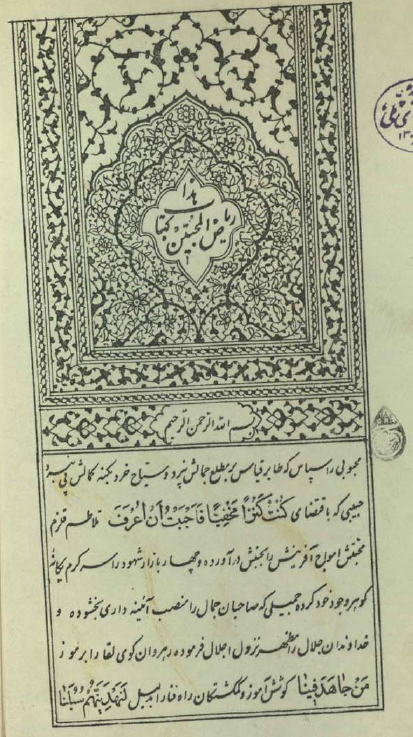 هذا
کتاب
ریاض المحبین
بسم الله الرحمن الرحیم
محبوبی را سپاس که طایر قیاس بر مطلع جمالش نپرد و سیاح خرد بکنه کمالش پی نبرد
حبیبی که باقتضای كُنْتُ كَنْزًا مَخْفِيًّا فَاَحْبَبْتُ اَنْ اُعْرَفَ تلاطم قلزم
محبتش امواج آفرینش را بجنبش درآورده و چهار بازار شهود را سرگرم یگانه
گوهر وجود خود کرده جمیلی که صاحبان جمال را منصب آئینه داری بخشوده و
خداوندان جلال را مظهر نزول اجلال فرموده رهروان کوی لقا را برموز
مَنْ جٰاهَدَ فِینٰا کوشش آموز و گمگشتگان راه فنا را بدلیل لَنَهْدِیَنَّهُمْ سُبُلَنٰا